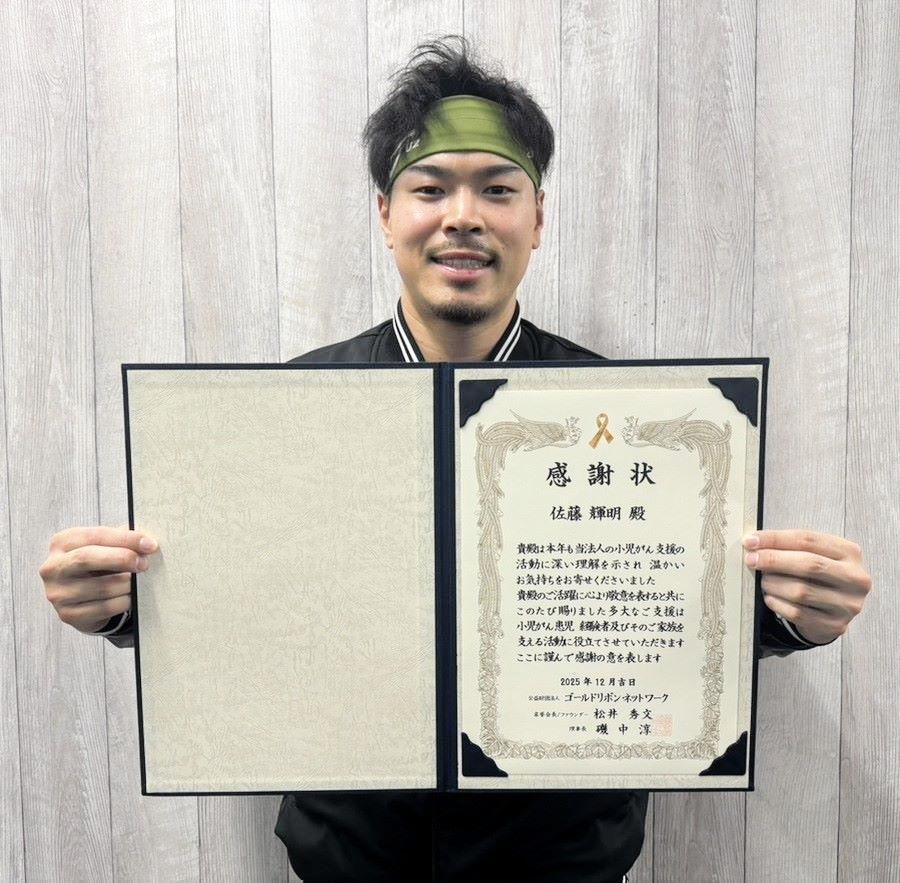 感謝状
佐藤 輝明 殿
貴殿は本年も当法人の小児がん支援の
活動に深い理解を示され 温かい
お気持ちをお寄せくださいました
貴殿のご活躍に心より敬意を表すると共に
このたび賜りました多大なご支援は
小児がん患児 経験者及びそのご家族を
支える活動に役立てさせていただきます
ここに謹んで感謝の意を表します
2025年12月吉日
公益財団法人 ゴールドリボン・ネットワーク
名誉会長/ファウンダー 松井 秀文
理事長 磯中 淳